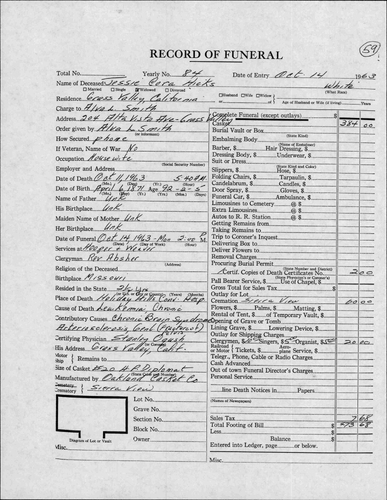 59
RECORD OF FUNERAL
Total No. Yearly No. 84 Date of Entry Oct 14 1963
Name of Deceased Jessie Cora Hicks White
Married Single Widowed Divorced (What Race)
Residence Grass Valley, California
Husband Wife Widow Age of Husband or Wife (if living) Years
Charge to Alva L. Smith
Address 204 Alta Vista Ave - Grass Valley
Order given by Alva L. Smith
How secured phone
If Veteran, Name of War No
Occupation Housewife
(Social Security Number)
Employer and Address
Date of Death Oct 11, 1963 5:40 A.M.
Date of Birth April 6, 1871 Age 92-2-5
Name of Father Unk
His Birthplace Unk
Maiden Name of Mother Unk
Her Birthplace Unk
Date of Funeral Oct 14, 1963 - Mon 2:00 P M
Services at
Clergyman Rev Absher
Religion of the Deceased
Birthplace Missouri
Resided in the State
Place of Death Holiday Hills Conv. Hosp.
Cause of Death
Contributory Causes Chronic Brain Syndrome
Certifying Physician
His Address Grass Valley, Calif.
Remains to
Size of Casket
Manufactured by Oakland Casket Co
Cemetery Sierra View
Lot No.
Grave No.
Section No.
Block No.
Owner
Diagram of Lot or Vault
Misc.
Complete Funeral (except outlays)
Casket 384 00
Burial Vault or Box
(State Kind)
Embalming Body
(Name of Embalmer)
Barber, $ Hair Dressing, $
Dressing Body, $ Underwear, $
Suit or Dress
(State Kind)
Slippers, $ Hose, $
Folding Chairs, $ Tarpaulin, $
Candelabrum, $ Candles, $
Door Spray, $ Gloves, $
Funeral Car, $ Ambulance, $
Limousines to Cemetery @ $
Extra Limousines @ $
Autos to R. R. Station @ $
Getting Remains from
Taking Remains to
Trip to Coroner's Inquest
Delivering Box to
Deliver Flowers to
Removal Charges
Procuring Burial Permit
(State Number and District)
Certif. Copies of Death Certificate No. 2.00
Pall Bearer Service, $ Use of Chapel, $
Gross Total for Sales Tax
Outlay for Lot
Cremation Sierra View
Flowers, $ Palms, $ Matting, $
Rental of Tent, $ of Temporary Vault, $
Opening of Grave or Tomb
Lining Grave, $ Lowering Device, $
Outlay for Shipping
Clergymen, $ Singers, $ Organist, $ 20 00
Railroad Motor Tickets, $ Aeroplane Service, $
Telegr., Phone, Cable or Radio Charges
Cash Advanced
Out of town Funeral Director's Charge
Personal Service
line Death Notices in Papers
(Names of Newspapers)
Sales Tax 7.68
Total Footing of Bill 573 68
Less
Balance
Entered into Ledger, page or below.
Misc.